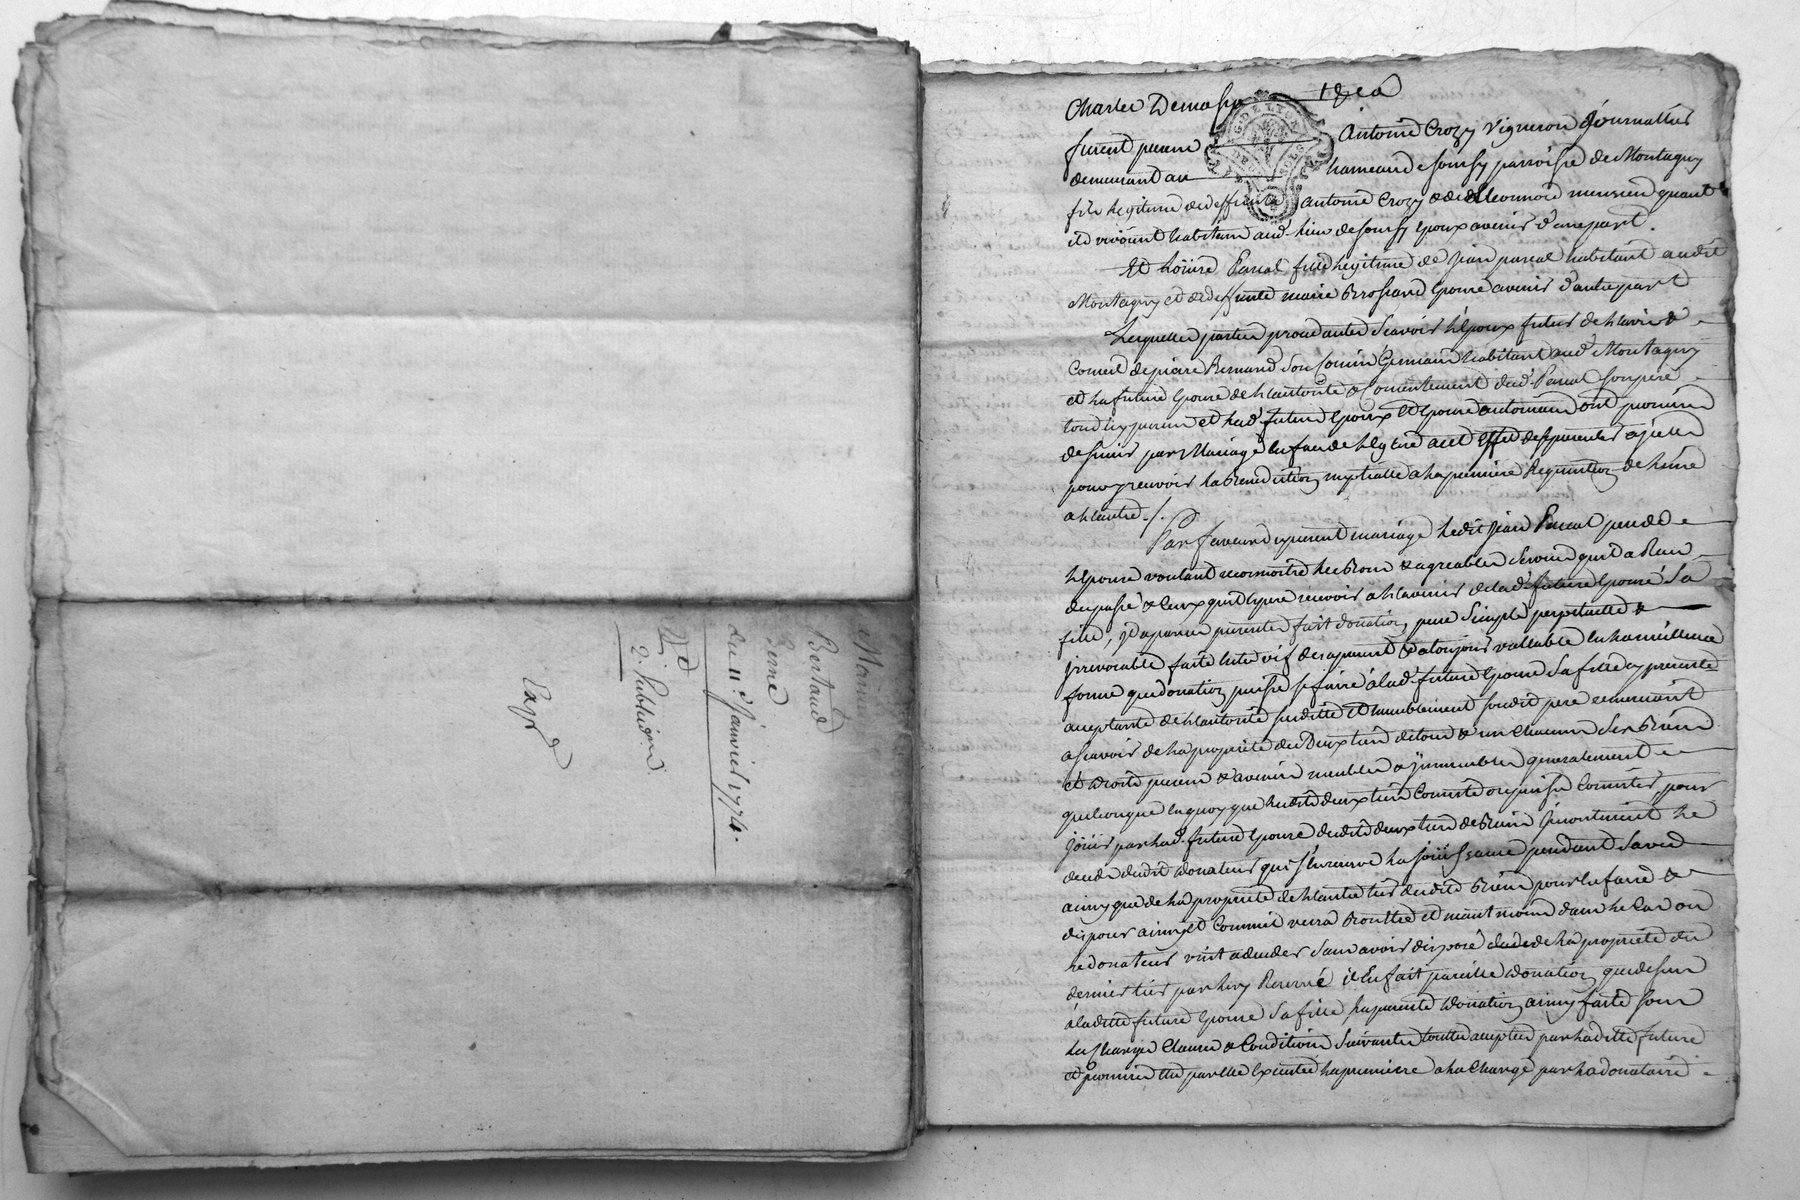 Mariage
Bertaud
Berne
du 11e. janvier 1774.
2. publica.on
Exp.d
Charles Demasso
furent presens Antoine Crozy vigneron journallier
demeurant au hameau de Sourzy parroisse de Montagny
fils legitime de deffunts Antoine Crozy & de Leonnord quand
ils vivoient habitans aud. lieu de Sourzy epoux avenir d'une part.
Et Loüise Pascal fille legitime de Jean Pascal habitant audit
Montagny et de deffunte marie Brossard epouse avenir d'autre part
Lesquelles parties procedantes Scavoir l'Epoux futur de l'avis &
Conseil de pierre Bernard Son Cousin Germain habitant aud. Montagny
et la future Epouse de l'autorité & Consentement dud. Pascal Son pere
tous icy presens et lesd. futurs Epoux et Epouse ont promis
de s'unir par Mariage en face de l'Eglise a cet Effet de se presenter a jcelle
pour y recevoir la Benediction nuptialle a la premiere Requisition de l'une
a l'autre./.
En faveur du present mariage ledit Jean Pascal pere de
l'Epouse voulant reconnoitre les Bons & agreables Services qu'il a Reçu
du passé & Ceux qu'il Espere recevoir a l'avenir de lad. future Epouse Sa
fille, fait donation pure Simple perpetuelle &
jrrevocable faite entre vif des apresent & a toujours vallable en la meilleure
forme que donation puisse se faire à lad. future Epouse Sa fille cy presente
acceptante de l'autorité susditte et humblement sondit pere remerciant
a Scavoir de la propriété des Deux tiers de tous & un Chacuns Ses Biens
et Droits presens & avenir meubles & jmmeubles generalement
quelconque en quoy que lesdits deux tiers Consiste ou puisse Consister, pour
joüir par lad. future Epouse desdits deux tiers de Biens le
deceds dudit Donateur qui s'en reserve la joüissance pendant Sa vie
ainsy que de la propriété de l'autre tiers desdits Biens pour en faire &
disposer ainsy et Comm'il verra Bon Etre et neantmoins dans le Cas ou
le donateur vint a deceder Sans avoir disposé de la propriété du
dernier tiers par luy Reservé il En fait pareille donation que dessus
à laditte future Epouse Sa fille, la presente donation ainsy faite sous
les Charges Clauses & Conditions Suivantes toutes acceptées par laditte future
et promise Etre par elle Executée la premiere a la Charge par la donataire